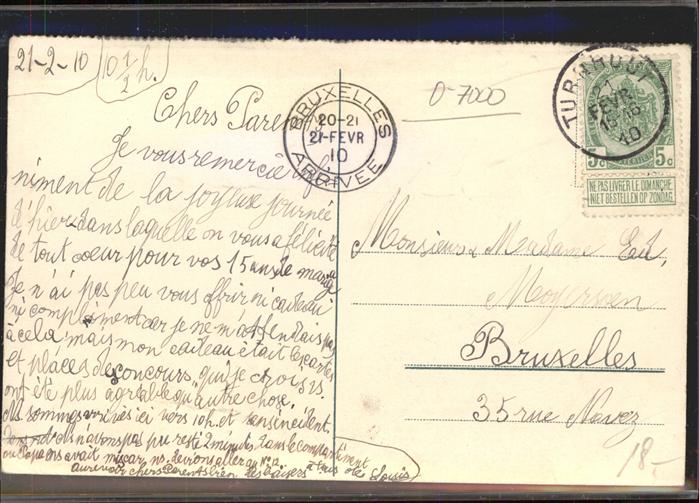 21-2-10
10 1/2 h.
Chers Parents
Je vous remercie infi
niment de la joyeuse journée
d'hier dans laquelle on vous a félicité
de tout coeur pour vos 15 ans de mariage
Je n'ai pas peu vous offrir ni cadeau
ni compliment car je ne m'attendais pas
à cela, mais mon cadeau était les cartes
et places de concours qui je crois vs.
ont été plus agréable qu'autre chose.
Ns sommes arrivés ici vers 10h. et
ns n'avons pas pu resté 2 minutes dans le
ou Papa ns avait mis car ns. devions aller au Nº 12
aurevoir chers Parents bien des baisers à tous de Louis
BRUXELLES
20-21
21-FEVR
10
ARRIVÉE
0-7000
TURNHOUT
21
FEVR
10
5c 5c
NE PAS LIVRER LE DIMANCHE
NIET BESTELLEN OP ZONDAG
Monsieur & Madame Ed.
Moyersoen
Bruxelles
35 rue Navez
18-